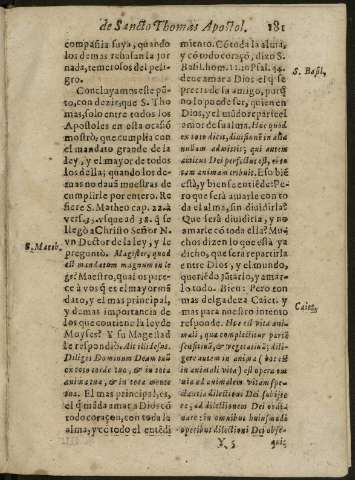 de Sancto Thomas Apostol. 181
compañia suya, quando
los demas rehusan la jor
nada, temerosos del peli-
gro.
Concluyamos este pũ-
to, con dezir, que S. Tho
mas, solo entre todos los
Apostoles en esta ocasiõ
mostrò, que cumplia con
el mandato grande de la
ley, y el mayor de todos
los della; quando los de-
mas no davã muestras de
cumplirle por entero. Re
fiere S. Matheo cap. 22. à
vers. 35. usque ad 38. q̃ se
llegò a Christo Señor N.
S. Math.
vn Doctor de la ley, y le
preguntò. Magister, quod
est mandatum magnum in le
ge? Maestro, qual os pare-
ce à vos q̃ es el mayor mã
dato, y el mas principal,
y de mas importancia de
los que contiene la ley de
Moyses? Y su Magestad
le respondiò.
Diliges Dominum Deum tuũ
ex toto corde tuo, & in tota
anima tua, & in tota mente
tua. El mas principal, es,
el q̃ mãda amar a Dios cõ
todo coraçon, con toda la
alma, y cõ todo el entẽdi
miento. Cõ toda la alma,
y cõ todo coraçõ, dize S.
Basil. hom. in Psal. 44.
S. Basil.
deue amar a Dios el q̃ se
precia de la amigo, porq̃
no lo puede ser, quien en
Dios, y el mũdo reparte el
amor de su alma. Hoc quod
ex toto dicis, diuisionẽ in alia
nullam admittit; qui autem
amicus Dei perfectus est, et to
tam animam tribuit. Esso biẽ
està, y bien se entiẽde: Pe-
ro que serà amarle con to
da el alma, sin diuidirla?
Que serà diuidirla, y no
amarle cõ toda ella? Mu-
chos dizen lo que està ya
dicho, que serà repartirla
entre Dios, y el mundo,
queriẽdo juntarlo, y amar
lo todo. Bien: Pero con
mas delgadeza Caiet. y
Caiet.
mas para nuestro intento
responde. Hoc est vita ani-
mali, qua complectitur partẽ
sensitiuã, & vegetatiuã; dili-
gere autem in anima (hoc est
in vita animali) est opera om
nia ad animalem vitam spe-
ctantia dilectioni Dei subijce
re; ad dilectionem Dei ordi-
nare: in omnibus huiusmodi
operibus dilectioni Dei obse-
Y 5
quie